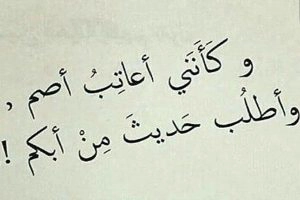 و كَأَنَني أعاتِبُ أصم ,
وأطلُب حَديثَ مِنْ أبكم !